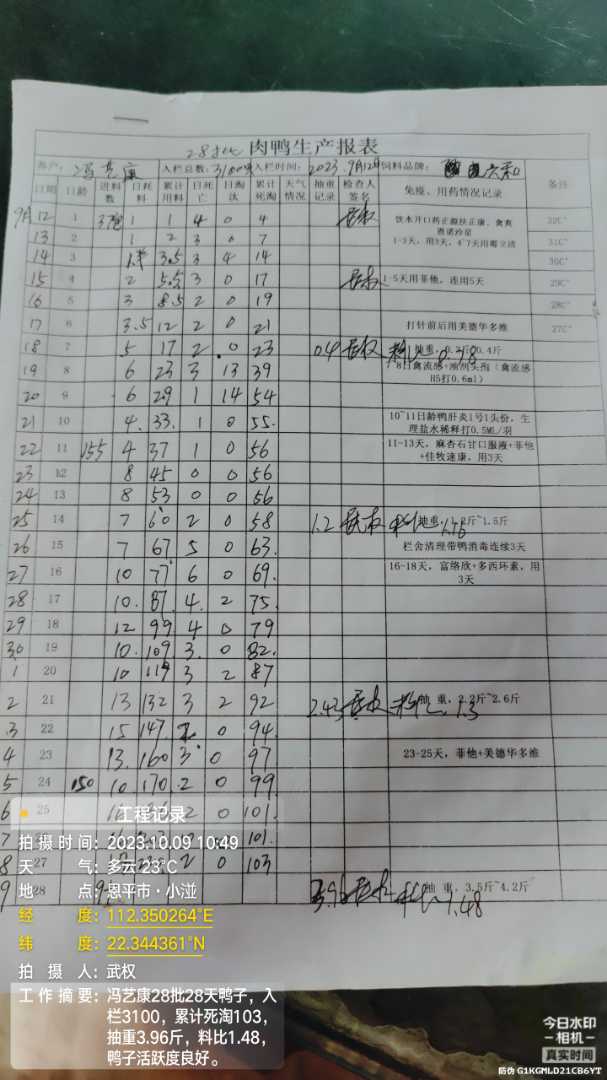 28批 肉鸭生产报表
客户: 冯艺康 入栏总数: 3100 入栏时间: 2023.9月12 饲料品牌: 六和
日期 日龄 进料数 日耗料 累计用料 日死亡 日淘汰 累计死淘 天气情况 抽重记录 检查人签名 免疫、用药情况记录 备注
9月12 1 1 1 4 0 4 武权 饮水开口药正源扶正康、禽爽 32C°
13 2 1 2 3 0 7 1-3天,用3天,4~7天用霉立清 31C°
14 3 3.5 3 4 14 30C°
15 4 2 5.5 3 0 17 武权 1-5天用菲他,连用5天 29C°
16 5 3 8.5 2 0 19 28C°
17 6 3.5 12 2 0 21 打针前后用美德华多维 27C°
18 7 5 17 2 0 23 0.4 武权 料比 0.78 抽重: 0.4斤
19 8 6 23 3 13 39 8日禽流感+ (禽流感H5打0.6ml)
20 9 6 29 1 14 54
21 10 4 33 1 0 55 10~11日龄鸭肝炎1号1头份,生理盐水稀释打0.5ML/羽
22 11 155 4 37 1 0 56 11-13天,麻杏石甘口服液+菲他+佳牧速康,用3天
23 12 8 45 0 0 56
24 13 8 53 0 0 56
25 14 7 60 2 0 58 1.2 武权 料比 抽重: ~1.5斤
26 15 7 67 5 0 63 栏舍清理带鸭消毒连续3天
27 16 10 77 6 0 69 16-18天,富络欣+多西环素,用3天
28 17 10 87 4 2 75
29 18 12 99 4 0 79
30 19 10 109 3 0 82
1 20 10 119 3 2 87
2 21 13 132 3 2 92 2.43 武权 料比 1.3 抽重: 2.2斤~2.6斤
3 22 15 147 2 0 94
4 23 13 160 3 0 97 23-25天,菲他+美德华多维
5 24 150 10 170 2 0 99
6 25 2 0 101
7 0 101
8 27 2 0 103
9 28 3.96 武权 料比 1.48 抽重: 3.5斤~4.2斤
工程记录
拍摄时间: 2023.10.09 10:49
天气: 多云 23℃
地点: 恩平市·小湴
经度: 112.350264°E
纬度: 22.344361°N
拍摄人: 武权
工作摘要: 冯艺康28批28天鸭子,入
栏3100,累计死淘103,
抽重3.96斤,料比1.48,
鸭子活跃度良好。
今日水印
-相机-
真实时间
防伪 G1KGMLD21CB6YT